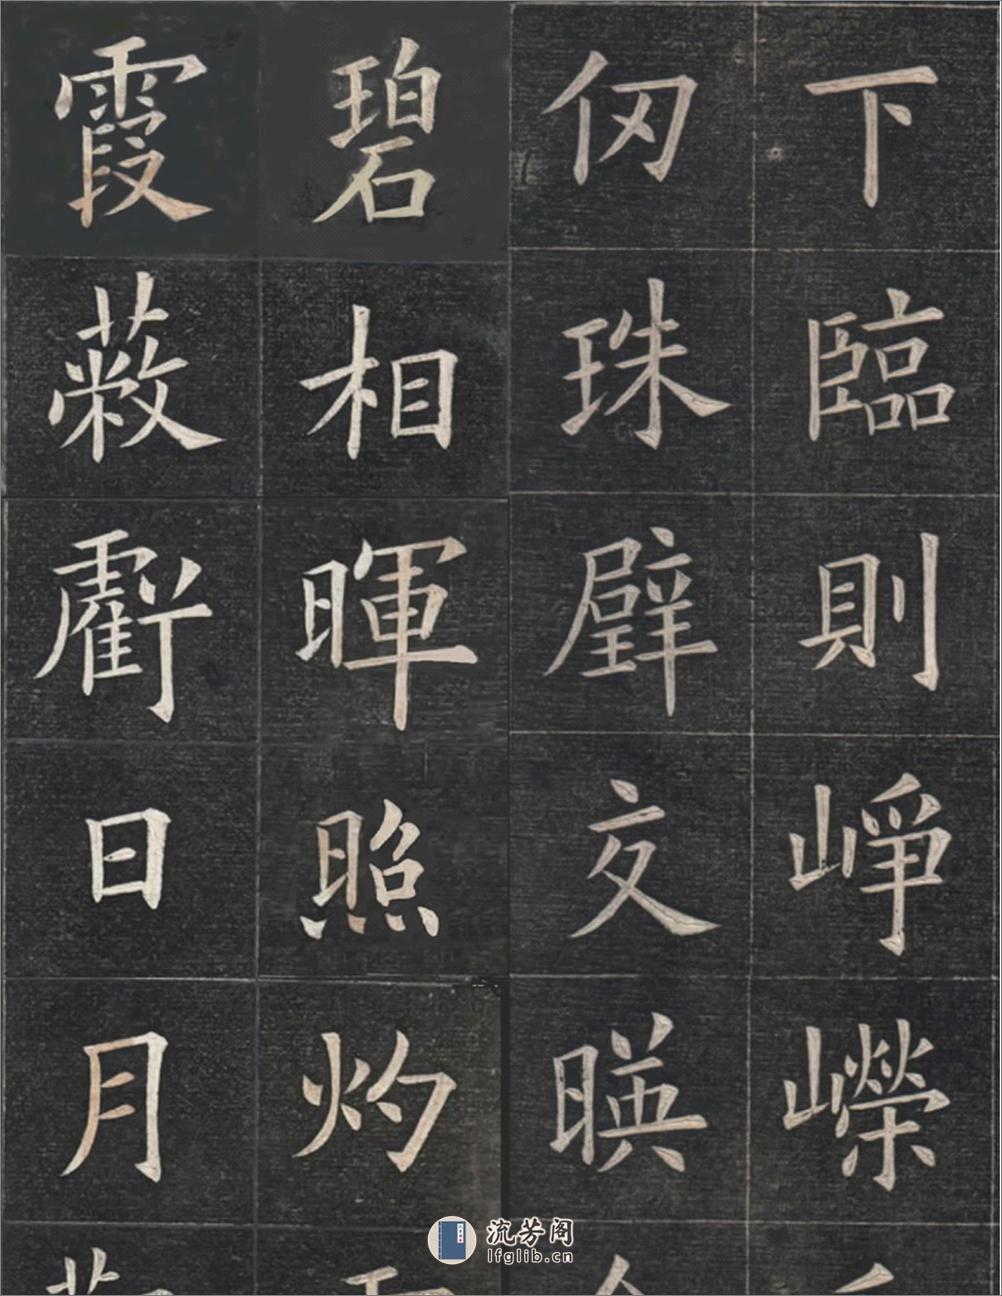 下臨則崢嶸
仞珠璧交暎
碧相暉照灼
霞蔽虧日月
流芳阁
lfglib.cn